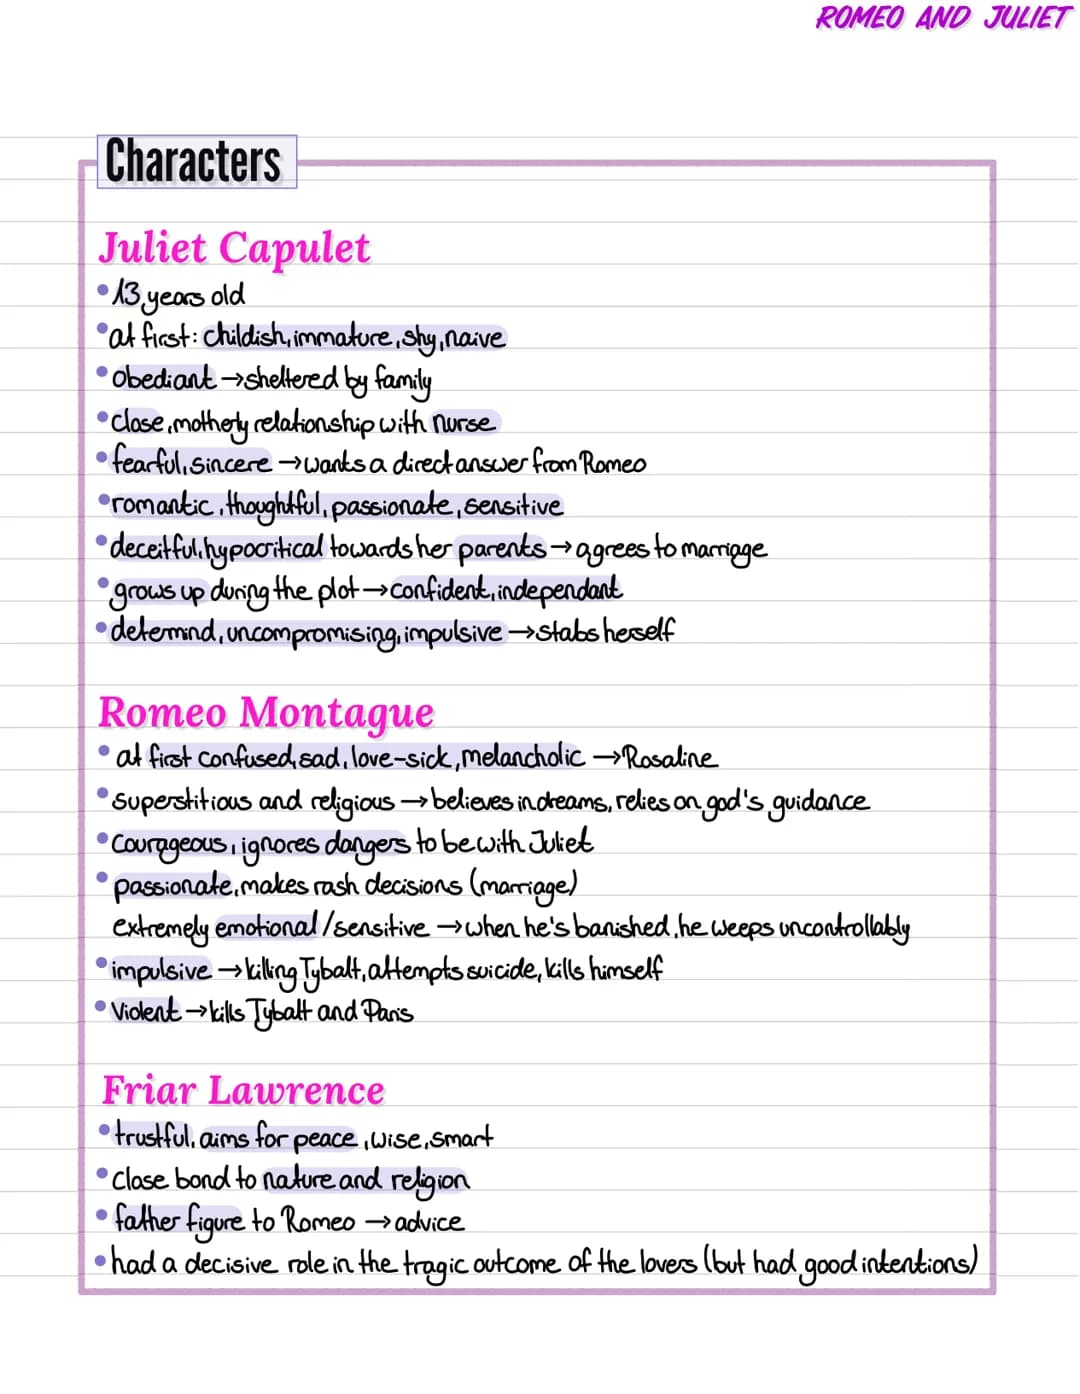 ROMEO AND JULIET
Characters
Juliet Capulet
•13 years old
•at first: childish, immature, shy, naive
•obediant →sheltered by family
•close, motherly relationship with nurse
•fearful, sincere →wants a direct answer from Romeo
•romantic, thoughtful, passionate, sensitive
•deceitful, hypocritical towards her parents→agrees to marriage
•grows up during the plot→confident, independant
•determind, uncompromising, impulsive →stabs herself
Romeo Montague
•at first confused, sad, love-sick, melancholic →Rosaline
•superstitious and religious →believes in dreams, relies on god's guidance
•courageous, ignores dangers to be with Juliet
•passionate, makes rash decisions (marriage)
extremely emotional/sensitive →when he's banished, he weeps uncontrollably
•impulsive →killing Tybalt, attempts suicide, kills himself
•Violent →kills Tybalt and Paris
Friar Lawrence
•trustful, aims for peace, wise, smart
•close bond to nature and religion
•father figure to Romeo →advice
•had a decisive role in the tragic outcome of the lovers (but had good intentions)